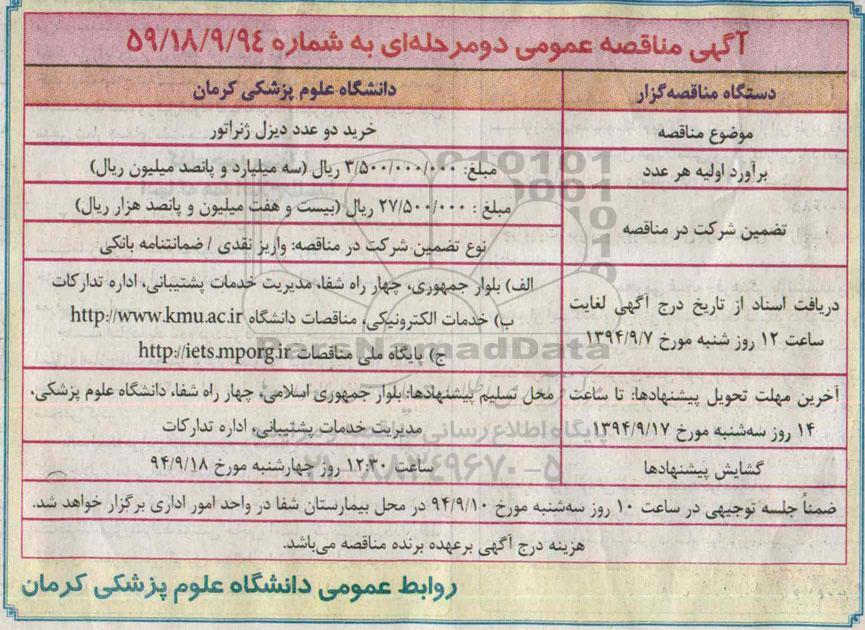 آگهی مناقصه عمومی دومرحله‌ای به شماره ۵۹/۱۸/۹/۹۴
دستگاه مناقصه‌گزار
دانشگاه علوم پزشکی کرمان
موضوع مناقصه
خرید دو عدد دیزل ژنراتور
برآورد اولیه هر عدد
مبلغ: ۳/۵۰۰/۰۰۰/۰۰۰ ریال (سه میلیارد و پانصد میلیون ریال)
تضمین شرکت در مناقصه
مبلغ : ۲۷/۵۰۰/۰۰۰ ریال (بیست و هفت میلیون و پانصد هزار ریال)
نوع تضمین شرکت در مناقصه: واریز نقدی / ضمانتنامه بانکی
دریافت اسناد از تاریخ درج آگهی لغایت
ساعت ۱۲ روز شنبه مورخ ۱۳۹۴/۹/۷
الف) بلوار جمهوری، چهار راه شفا، مدیریت خدمات پشتیبانی، اداره تدارکات
ب) خدمات الکترونیکی، مناقصات دانشگاه http://www.kmu.ac.ir
ج) پایگاه ملی مناقصات http://iets.mporg.ir
آخرین مهلت تحویل پیشنهادها: تا ساعت
۱۴ روز سه‌شنبه مورخ ۱۳۹۴/۹/۱۷
محل تسلیم پیشنهادها: بلوار جمهوری اسلامی، چهار راه شفا، دانشگاه علوم پزشکی،
مدیریت خدمات پشتیبانی، اداره تدارکات
گشایش پیشنهادها
ساعت ۱۲:۳۰ روز چهارشنبه مورخ ۹۴/۹/۱۸
ضمناً جلسه توجیهی در ساعت ۱۰ روز سه‌شنبه مورخ ۹۴/۹/۱۰ در محل بیمارستان شفا در واحد امور اداری برگزار خواهد شد.
هزینه درج آگهی برعهده برنده مناقصه می‌باشد.
روابط عمومی دانشگاه علوم پزشکی کرمان
ParsNamadData
پایگاه اطلاع رسانی
۰۲۱-۸۸۳۴۹۶۷۰-۵